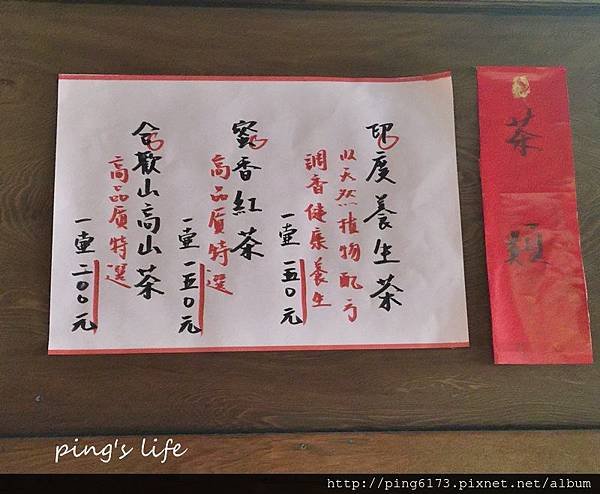 茶類
印度養生茶
以天然植物配方
調香健康養生
一壺 一五〇元
蜜香紅茶
高品质特選
一壺 一五〇元
合歡山高山茶
高品质特選
一壺 二〇〇元
ping's life
http://ping6173.pixnet.net/album